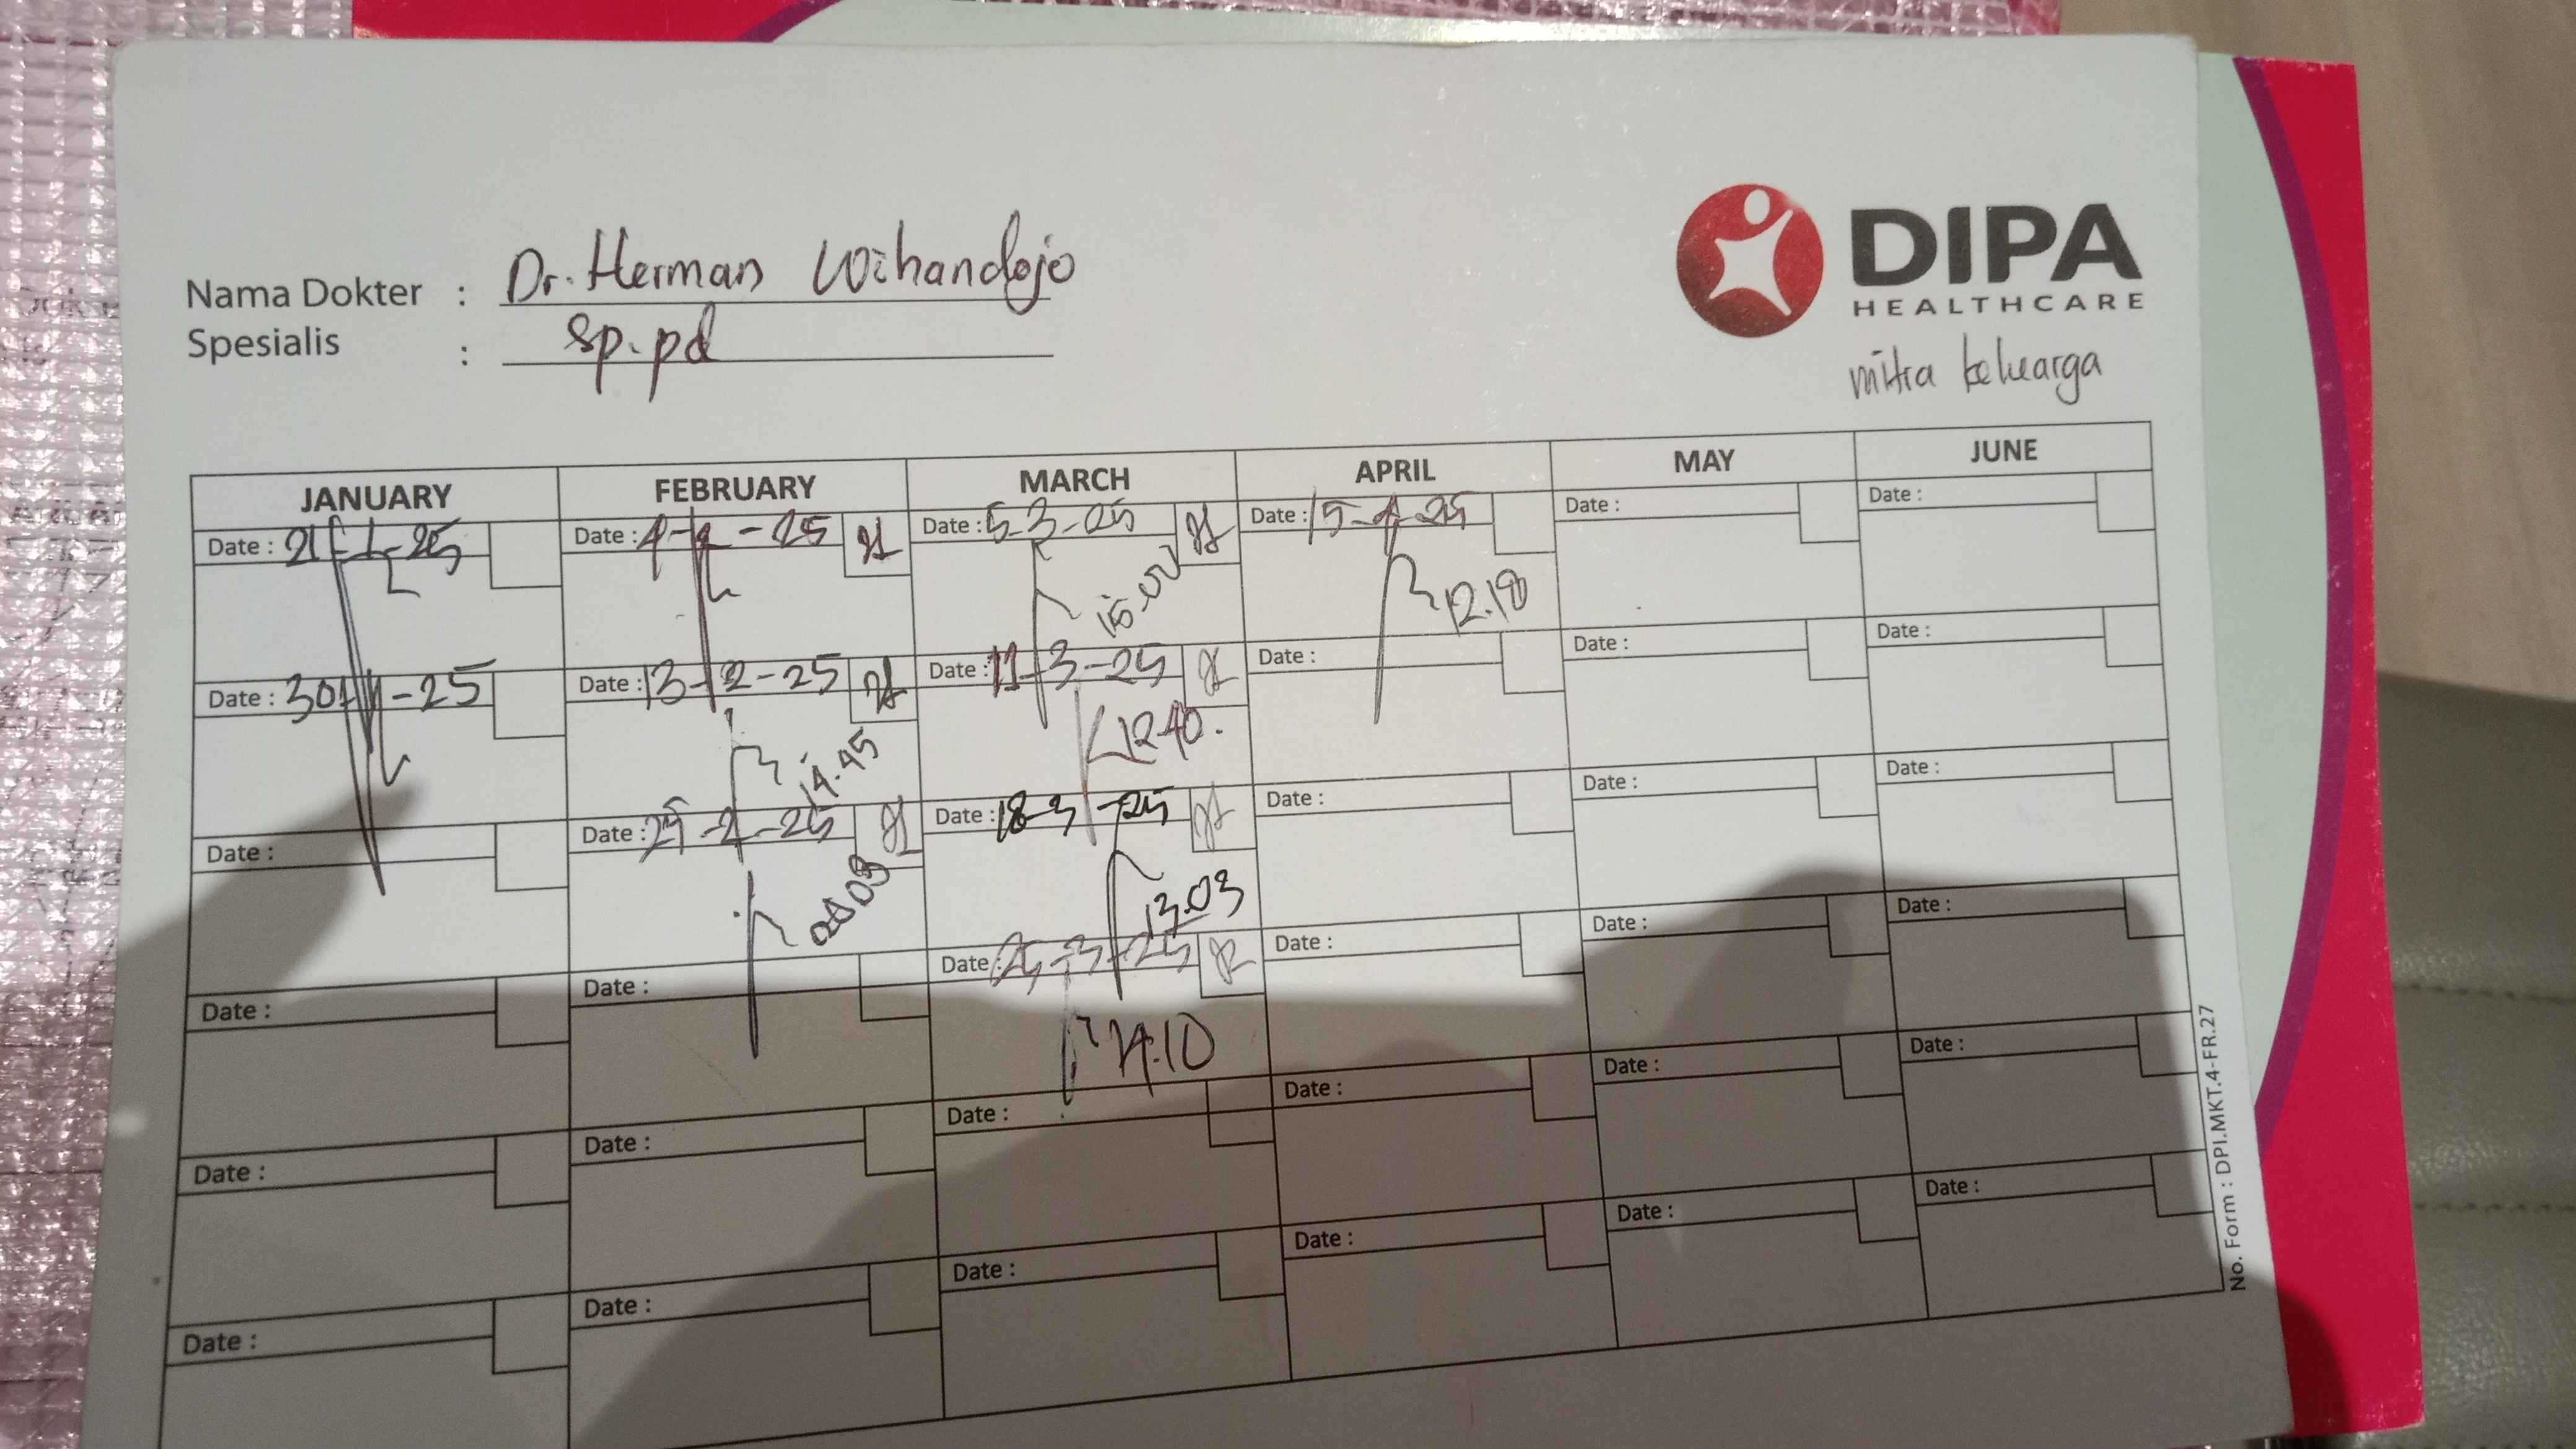 DIPA
HEALTHCARE
mitra keluarga
Nama Dokter : Dr. Herman Wihandojo
Spesialis : Sp.pd
JANUARY FEBRUARY MARCH APRIL MAY JUNE
Date : 21-1-25 Date : 4-2-25 Date : 5-3-25 Date : 15-4-25 Date : Date :
15.00 12.18
Date : 30-1-25 Date : 13-2-25 Date : 11-3-25 Date : Date : Date :
14.45 12.40.
Date : Date : 25-2-25 Date : 18-3-25 Date : Date : Date :
13.03
Date : Date : Date : 25-3-25 Date : Date : Date :
14.10
Date : Date : Date : Date : Date : Date :
Date : Date : Date : Date : Date : Date :
No. Form : DPI.MKT.4-FR.27